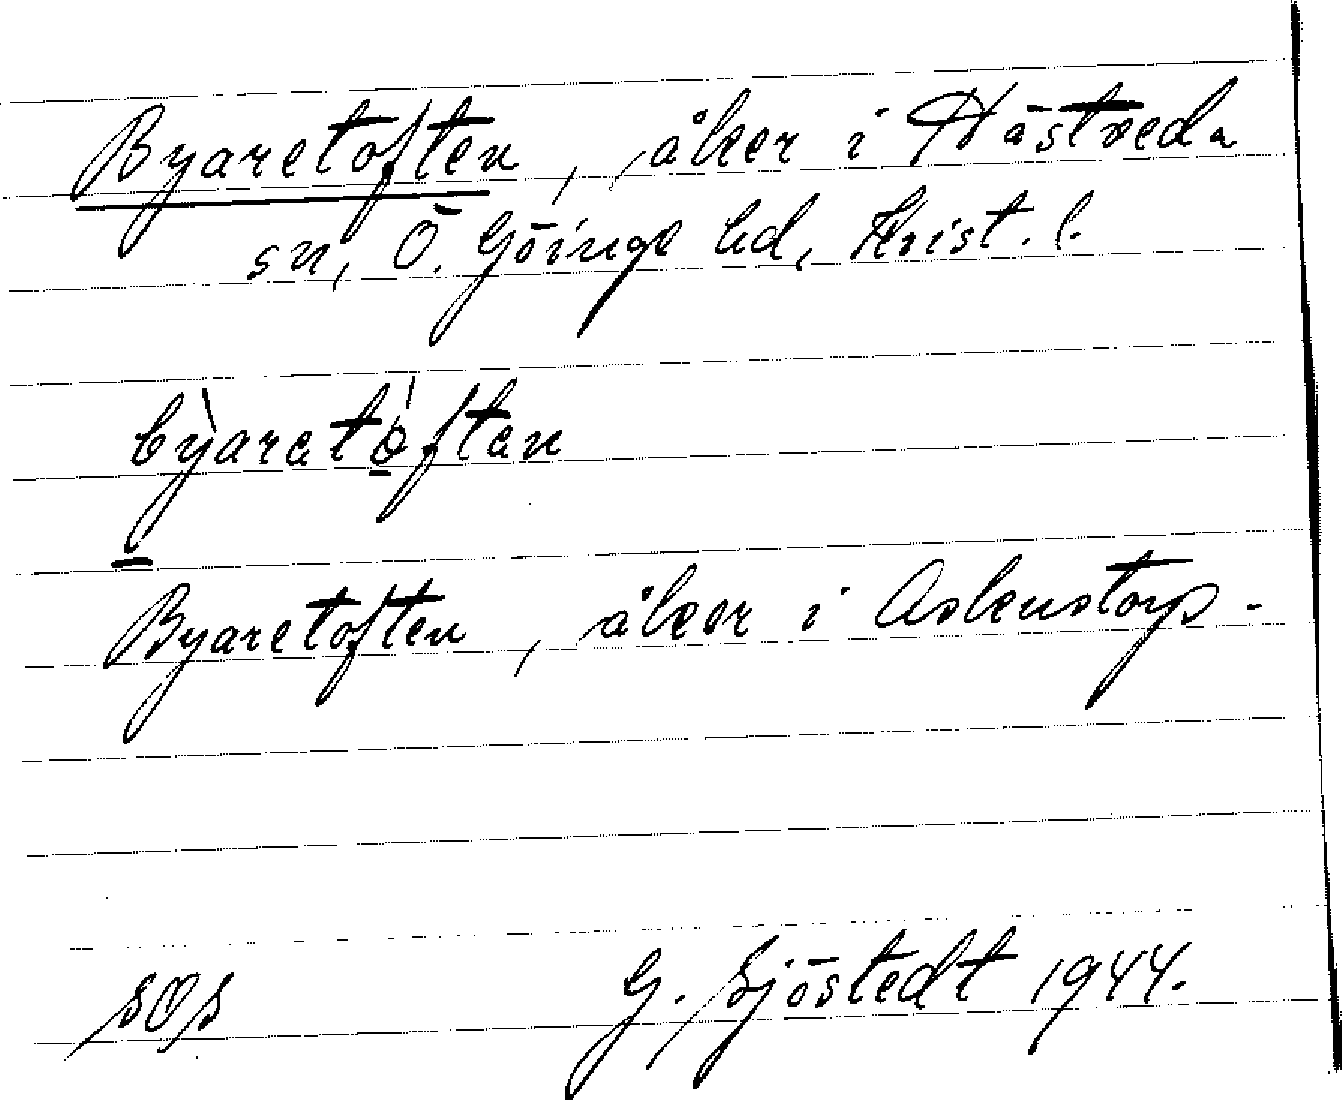 Byaretoften, åker i Hästveda
sn, Ö. Göinge hd, Krist. l.
býaretòften
Byaretoften, åker i Askenstorp.
SOS G. Sjöstedt 1944.